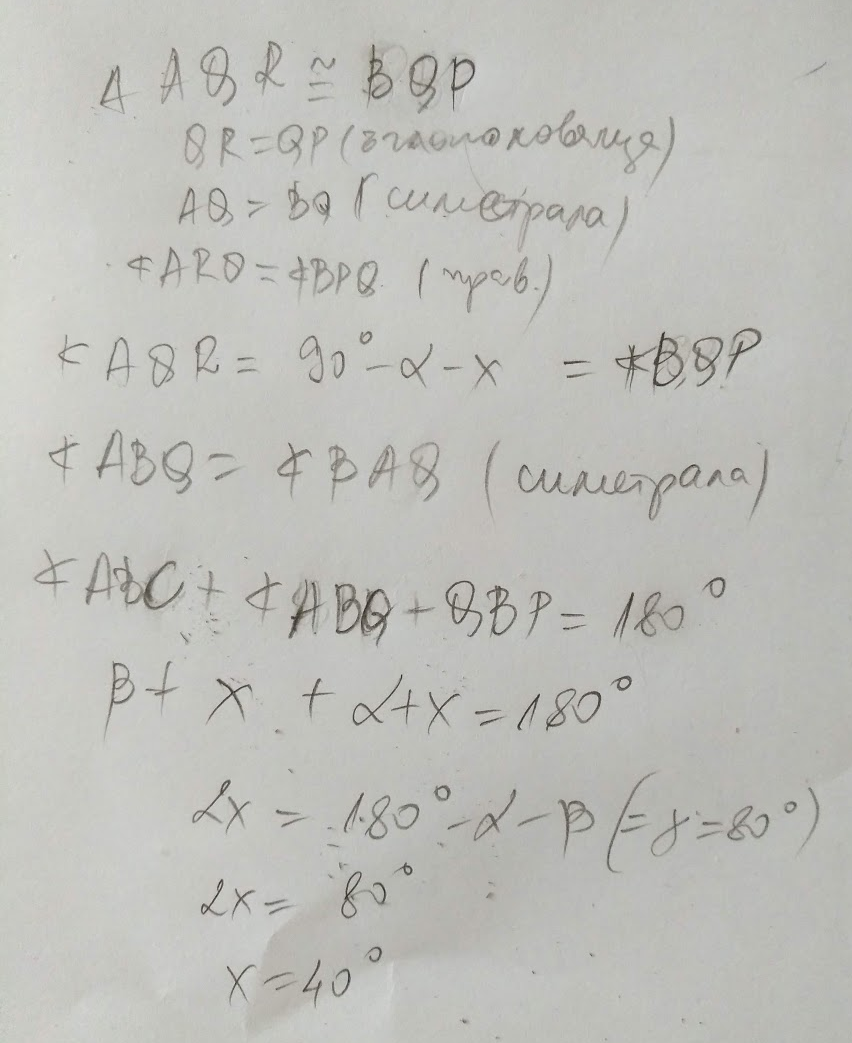 ∆ AQR ≅ BQP
QR = QP (ъглополовяща)
AQ = BQ (симетрала)
∢ARQ = ∢BPQ (прав.)
∢AQR = 90° - α - x = ∢BQP
∢ABQ = ∢BAQ (симетрала)
∢ABC + ∢ABQ + QBP = 180°
β + x + α + x = 180°
2x = 180° - α - β (= γ = 80°)
2x = 80°
x = 40°